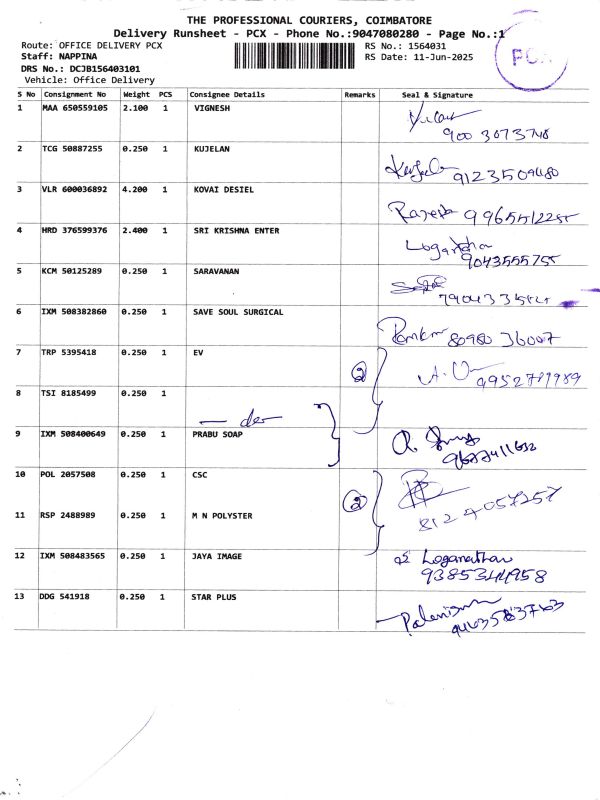 THE PROFESSIONAL COURIERS, COIMBATORE
Delivery Runsheet - PCX - Phone No.:9047080280 - Page No.:1
Route: OFFICE DELIVERY PCX RS No.: 1564031
Staff: NAPPINA RS Date: 11-Jun-2025
DRS No.: DCJB156403101
Vehicle: Office Delivery
PCX
S No Consignment No Weight PCS Consignee Details Remarks Seal & Signature
1 MAA 650559105 2.100 1 VIGNESH
2 TCG 50887255 0.250 1 KUJELAN
3 VLR 600036892 4.200 1 KOVAI DESIEL
4 HRD 376599376 2.400 1 SRI KRISHNA ENTER
9043555755
5 KCM 50125289 0.250 1 SARAVANAN
6 IXM 508382860 0.250 1 SAVE SOUL SURGICAL
80980 36007
7 TRP 5395418 0.250 1 EV
2
8 TSI 8185499 0.250 1
9 IXM 508400649 0.250 1 PRABU SOAP
10 POL 2057508 0.250 1 CSC
2
8124057257
11 RSP 2488989 0.250 1 M N POLYSTER
12 IXM 508483565 0.250 1 JAYA IMAGE
Loganathan
9385344958
13 DDG 541918 0.250 1 STAR PLUS